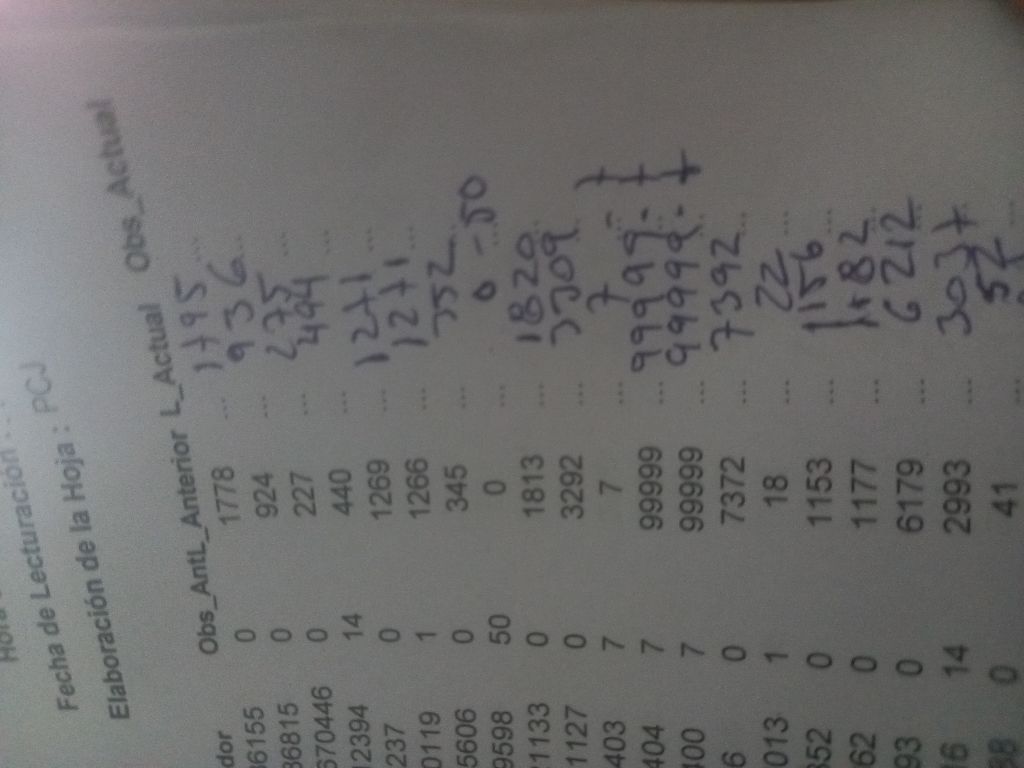 Fecha de Lecturación :
Elaboración de la Hoja : PCJ
Obs_AntL_Anterior L_Actual Obs_Actual
36155 0 1778 ... 1795 ...
36815 0 924 ... 936 ...
670446 0 227 ... 275 ...
12394 14 440 ... 494 ...
237 0 1269 ... 1271 ...
0119 1 1266 ... 1271 ...
5606 0 345 ... 352 ...
9598 50 0 ... 0 - 50
21133 0 1813 ... 1820 ...
1127 0 3292 ... 3309 ...
403 7 7 ... 7 7
404 7 99999 ... 99999 - 7
400 7 99999 ... 99999 - 7
6 0 7372 ... 7392 ...
013 1 18 ... 22 ...
352 0 1153 ... 1156 ...
62 0 1177 ... 1182 ...
93 0 6179 ... 6212 ...
16 14 2993 ... 3037 ...
38 0 41 ... 52 ...